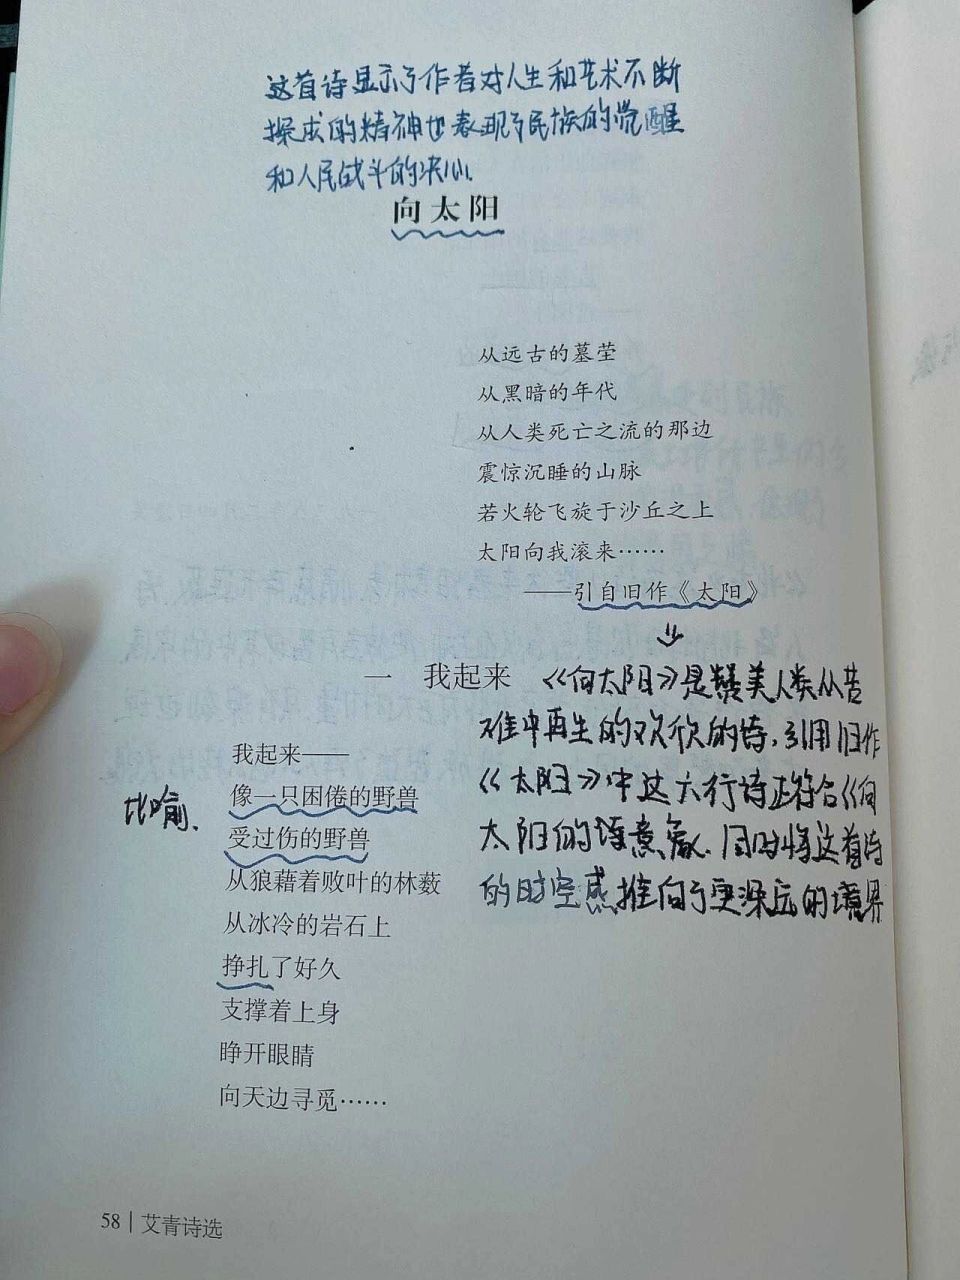 这首诗显示了作者对人生和艺术不断
探求的精神也表现了民族的觉醒
和人民战斗的决心.
向太阳
从远古的墓茔
从黑暗的年代
从人类死亡之流的那边
震惊沉睡的山脉
若火轮飞旋于沙丘之上
太阳向我滚来……
——引自旧作《太阳》
一 我起来
《向太阳》是赞美人类从苦
难中再生的欢欣的诗，引用旧作
《太阳》中这六行诗正符合《向
太阳的诗意象.同时将这首诗
的时空感推向了更深远的境界
我起来——
像一只困倦的野兽
比喻.
受过伤的野兽
从狼藉着败叶的林薮
从冰冷的岩石上
挣扎了好久
支撑着上身
睁开眼睛
向天边寻觅……
58 | 艾青诗选